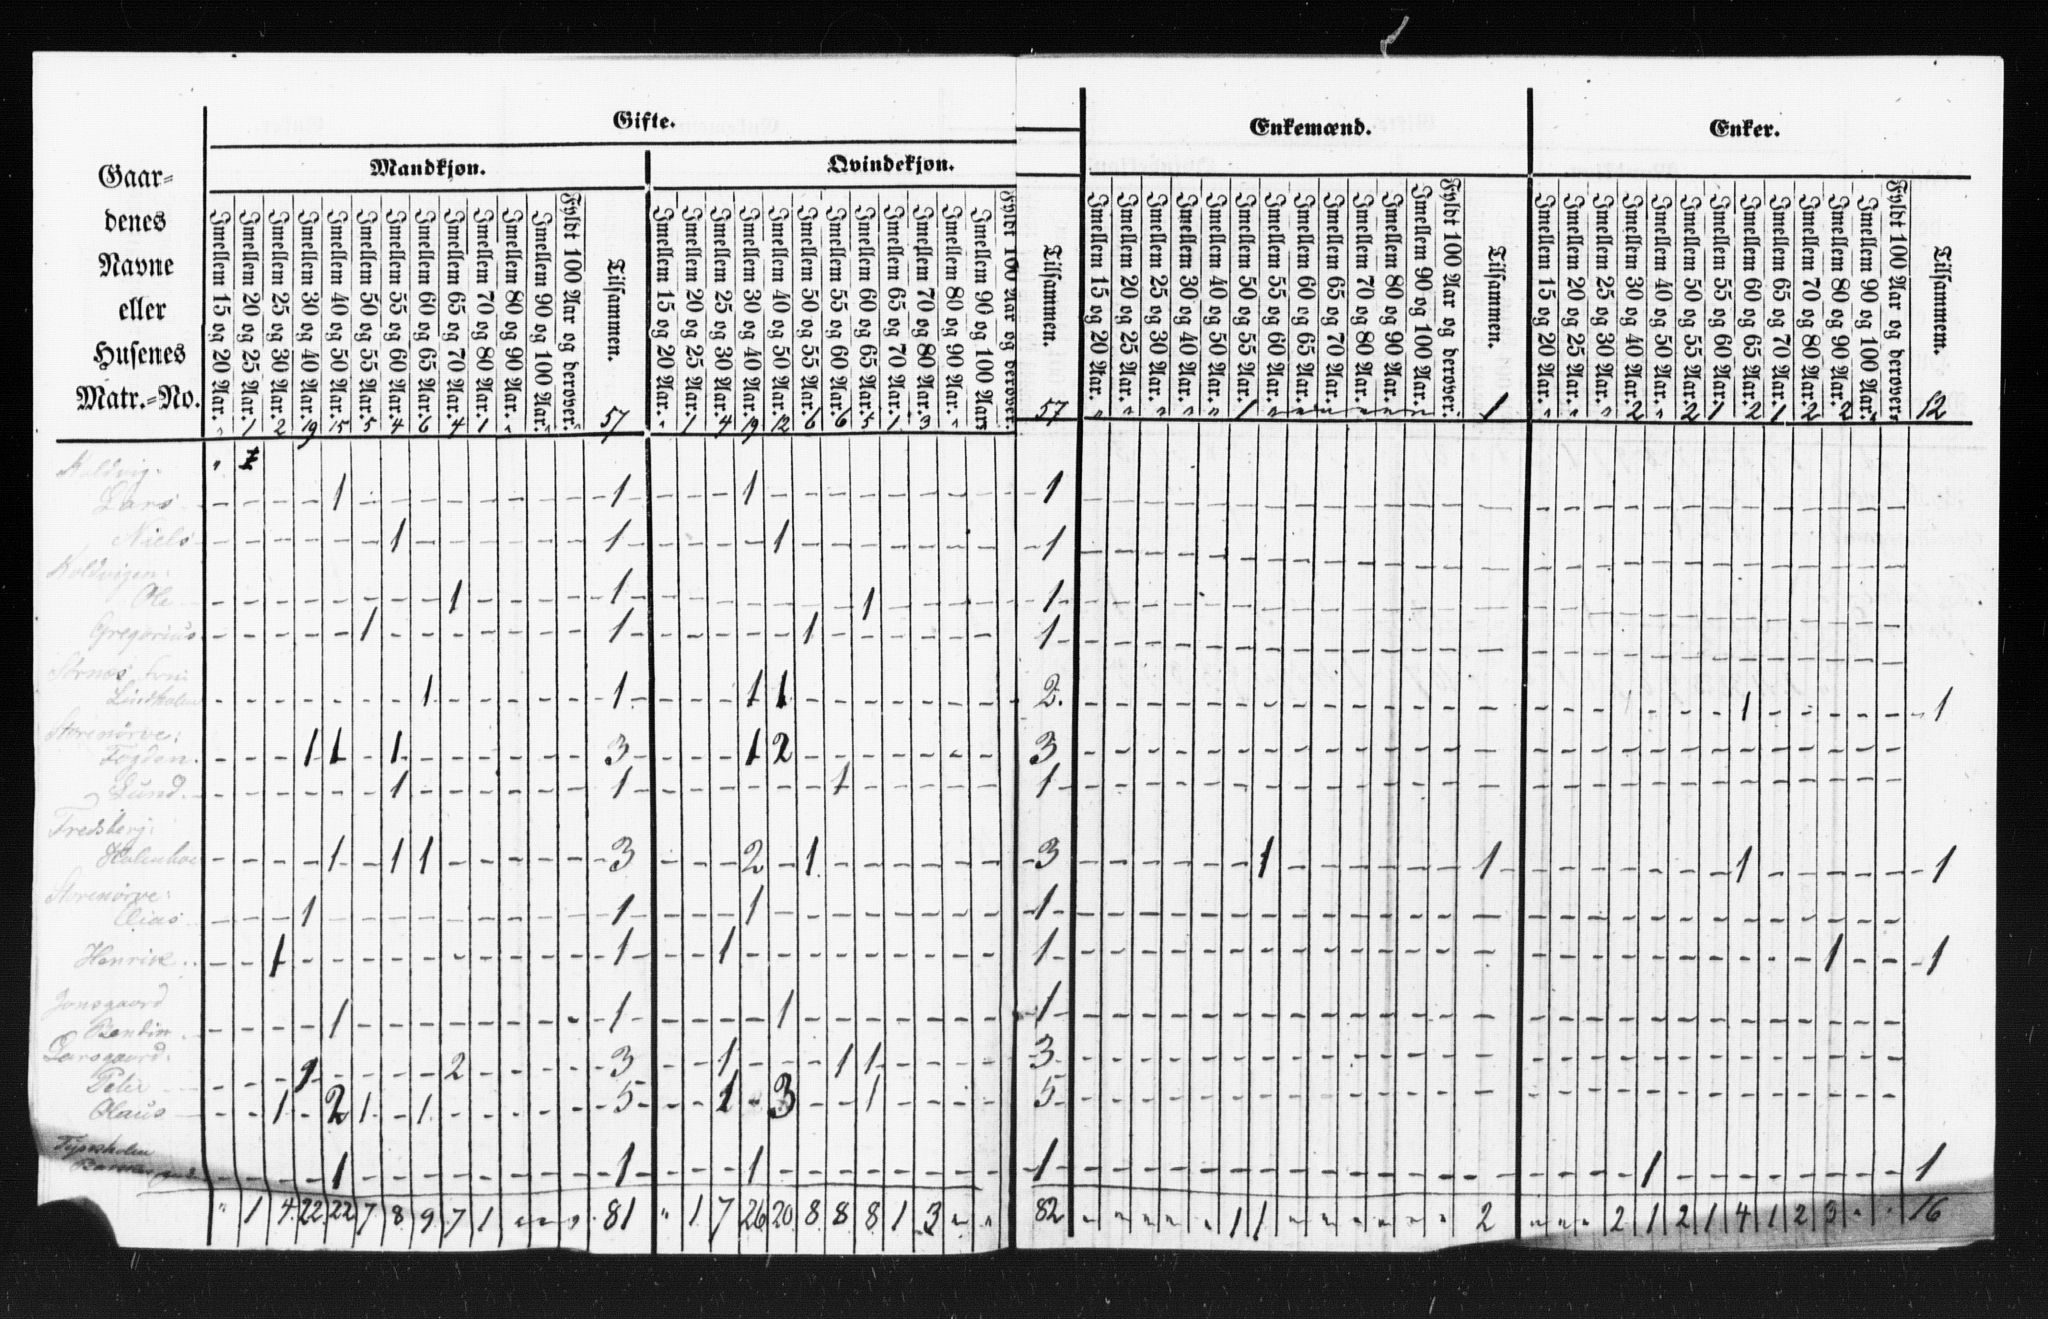 Gifte.
Enkemænd.
Enker.
Mandkjøn.
Qvindekjøn.
Gaar=
denes
Navne
eller
Husenes
Matr.=No.
Imellem 15 og 20 Aar. "
Imellem 20 og 25 Aar. 1
Imellem 25 og 30 Aar. 2
Imellem 30 og 40 Aar. 19
Imellem 40 og 50 Aar. 15
Imellem 50 og 55 Aar. 5
Imellem 55 og 60 Aar. 4
Imellem 60 og 65 Aar. 6
Imellem 65 og 70 Aar. 4
Imellem 70 og 80 Aar. 1
Imellem 80 og 90 Aar. "
Imellem 90 og 100 Aar. "
Fyldt 100 Aar og derover. "
Tilsammen. 57
Imellem 15 og 20 Aar. "
Imellem 20 og 25 Aar. 1
Imellem 25 og 30 Aar. 4
Imellem 30 og 40 Aar. 19
Imellem 40 og 50 Aar. 12
Imellem 50 og 55 Aar. 6
Imellem 55 og 60 Aar. 6
Imellem 60 og 65 Aar. 5
Imellem 65 og 70 Aar. 1
Imellem 70 og 80 Aar. 3
Imellem 80 og 90 Aar. "
Imellem 90 og 100 Aar
Fyldt 100 Aar og derover.
Tilsammen. 57
Imellem 15 og 20 Aar. "
Imellem 20 og 25 Aar. "
Imellem 25 og 30 Aar. "
Imellem 30 og 40 Aar. "
Imellem 40 og 50 Aar. "
Imellem 50 og 55 Aar. 1
Imellem 55 og 60 Aar. "
Imellem 60 og 65 Aar. "
Imellem 65 og 70 Aar. "
Imellem 70 og 80 Aar. "
Imellem 80 og 90 Aar. "
Imellem 90 og 100 Aar. "
Fyldt 100 Aar og derover. "
Tilsammen. 1
Imellem 15 og 20 Aar. "
Imellem 20 og 25 Aar. "
Imellem 25 og 30 Aar. "
Imellem 30 og 40 Aar. 2
Imellem 40 og 50 Aar. "
Imellem 50 og 55 Aar. 2
Imellem 55 og 60 Aar. 1
Imellem 60 og 65 Aar. 2
Imellem 65 og 70 Aar. 1
Imellem 70 og 80 Aar. 2
Imellem 80 og 90 Aar. 2
Imellem 90 og 100 Aar. "
Fyldt 100 Aar og derover. "
Tilsammen. 12
Koldvig:
Lars 1 1 1 1
Niels 1 1 1 1
Koldvigen:
Ole 1 1 1 1
Gregorius 1 1 1 1
Stornæs
Lindholm 1 1 1 1 2. 1 1
Storenørve:
Fogden. 1 1 1 3 1 2 3
Lund. 1 1 1 1
Fredsberg:
Holmboe 1 1 1 3 2 1 3 1 1 1 1
Storenørve:
Elias 1 1 1 1
Henrik 1 1 1 1 1 1
Jonsgaard
Bendix 1 1 1 1
Larsgaard:
Peter 1 2 3 1 1 1 3
Olaus 1 2 1 1 5 1 3 1 5
Tyssholm
1 1 1 1 1 1
" 1 4 22 22 7 8 9 7 1 " " " 81 " 1 7 26 20 8 8 8 1 3 " " 82 " " " " " 1 1 " " " " " " 2 " " " 2 1 2 1 4 1 2 3 " " 16